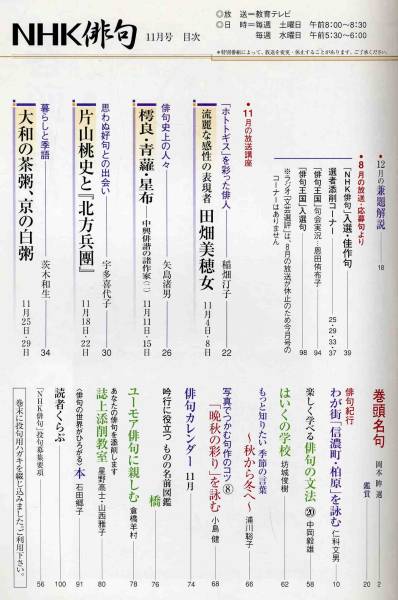 NHK俳句 11月号 目次
◎放 送=教育テレビ
◎日 時=毎週 土曜日 午前8:00〜8:30
毎週 水曜日 午前5:30〜6:00
*特別番組によって、放送を変更・休止することがあります。ご了承ください。
巻頭名句
岡本眸 選
2
鑑賞
20
俳句紀行
わが街「信濃町・柏原」を詠む 仁科文男 10
楽しく学べる俳句の文法⑳ 中岡毅雄 58
はいくの学校 坊城俊樹 62
もっと知りたい 季節の言葉
〜秋から冬へ〜 浦川聡子 66
写真でつかむ句作のコツ⑧
「晩秋の彩り」を詠む 小島健 68
俳句カレンダー 11月 74
吟行に役立つ ものの名前図鑑
橋 76
ユーモア俳句に親しむ 倉橋羊村 78
あなたの俳句を添削します
誌上添削教室 星野高士・山西雅子 80
〈俳句の世界がひろがる〉本 石田郷子 91
読者くらぶ 100
「NHK俳句」投句募集要項 56
巻末に投句用ハガキを綴じ込みました。ご利用下さい。
12月の兼題解説 18
●8月の放送・応募句より
「NHK俳句」入選・佳作句 39
選者添削コーナー 25・29・33・37
「俳句王国」句会実況…恩田侑布子 94
「俳句王国」入選句 98
※ラジオ「文芸選評」は、8月の放送が休止のため今月号のコーナーはありません
●11月の放送講座
「ホトトギス」を彩った俳人
流麗な感性の表現者 田畑美穂女 11月4日・8日
稲畑汀子 22
俳句史上の人々
樗良・青蘿・星布 ―中興俳諧の諸作家(二) 11月11日・15日
矢島渚男 26
思わぬ好句との出会い
片山桃史と『北方兵團』 11月18日・22日
宇多喜代子 30
暮らしと季語
大和の茶粥、京の白粥 11月25日・29日
茨木和生 34